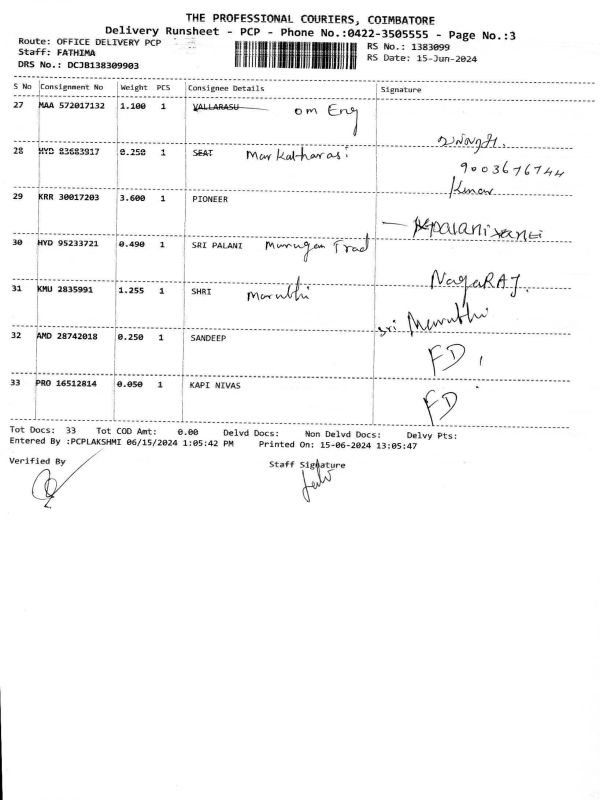 THE PROFESSIONAL COURIERS, COIMBATORE
Delivery Runsheet - PCP - Phone No.:0422-3505555 - Page No.:3
Route: OFFICE DELIVERY PCP
Staff: FATHIMA
DRS No.: DCJB138309903
RS No.: 1383099
RS Date: 15-Jun-2024
S No Consignment No Weight PCS Consignee Details Signature
27 MAA 572017132 1.100 1 VALLARASU om Eng
28 HYD 83683917 0.250 1 SEAT Markatharasi
9003676744
Kumar
29 KRR 30017203 3.600 1 PIONEER
30 HYD 95233721 0.490 1 SRI PALANI Murugan Trad
NagaRAJ.
31 KMU 2835991 1.255 1 SHRI Maruthi
Sri Maruthi
32 AMD 28742018 0.250 1 SANDEEP FD,
33 PRO 16512814 0.050 1 KAPI NIVAS FD
Tot Docs: 33 Tot COD Amt: 0.00 Delvd Docs: Non Delvd Docs: Delvy Pts:
Entered By :PCPLAKSHMI 06/15/2024 1:05:42 PM Printed On: 15-06-2024 13:05:47
Verified By Staff Signature